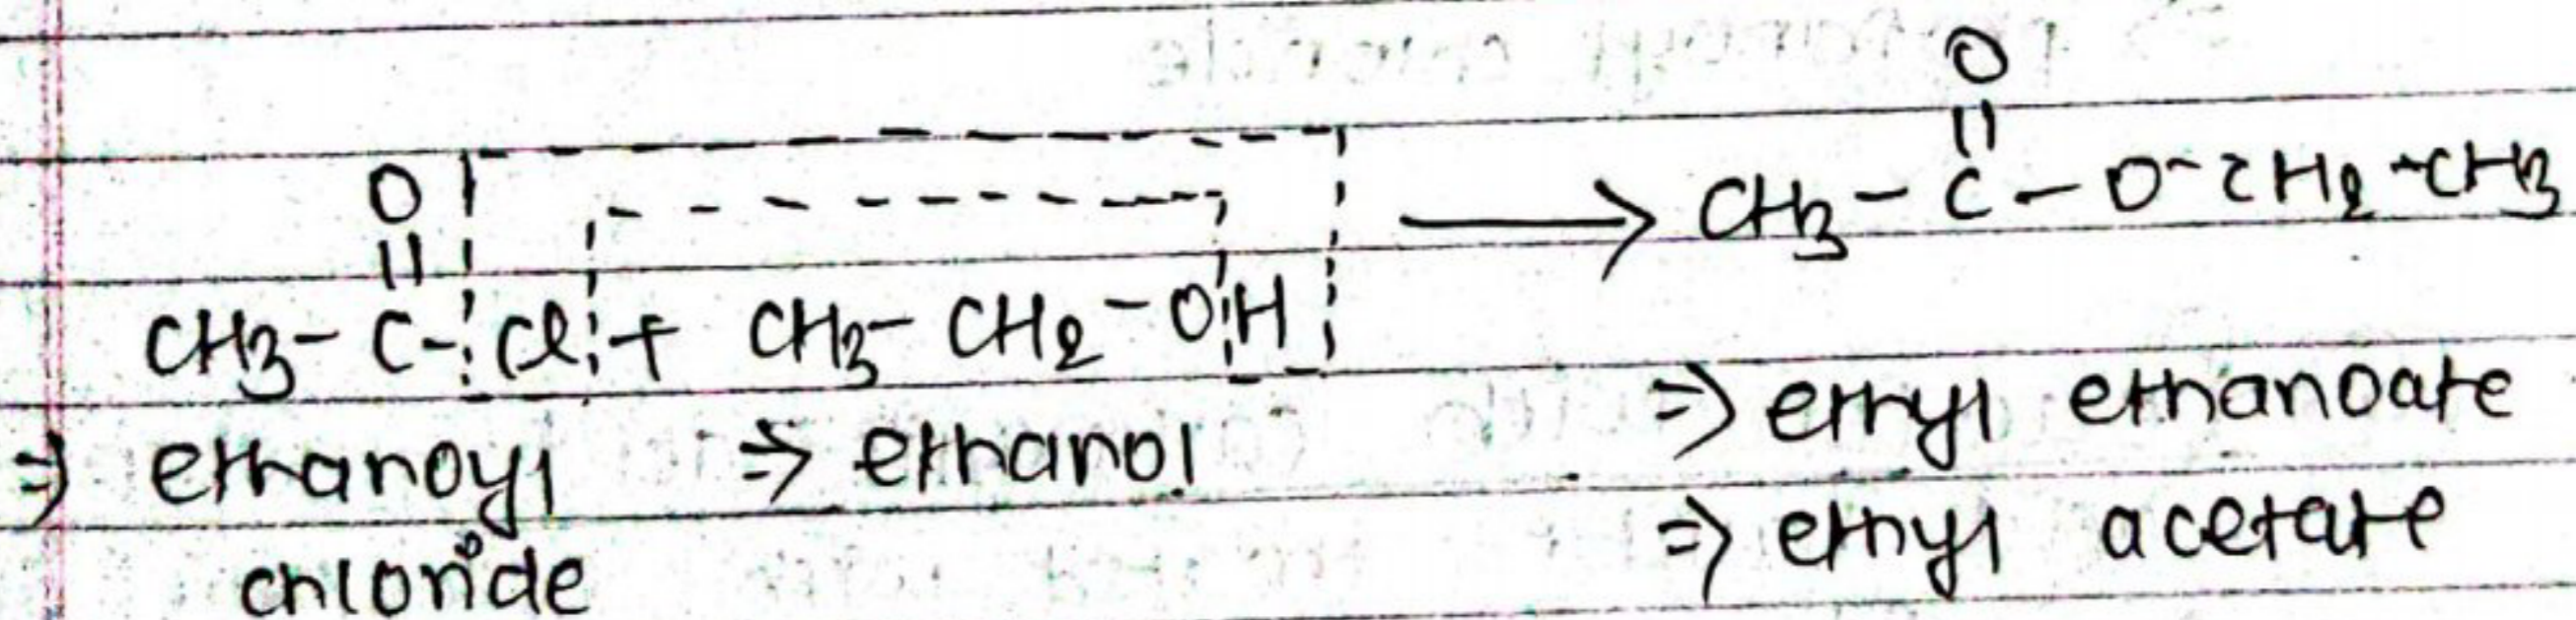 O
||
CH3 - C - O - CH2 - CH3
O
||
CH3 - C - Cl + CH3 - CH2 - OH ⟶
⇒ ethanoyl chloride
⇒ ethanol
⇒ ethyl ethanoate
⇒ ethyl acetate